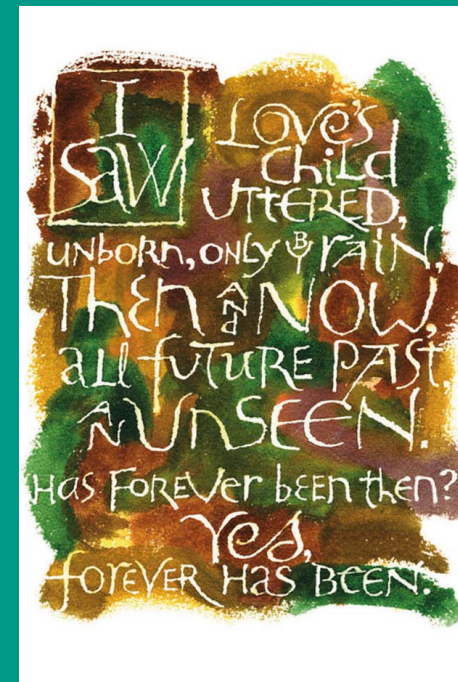 I
SaW
Love's
Child
UTTERED,
unborn, only BY rain,
Then AND NOW,
all fuTuRE PAST,
AN UnSEEN.
Has Forever bEEn then?
Yes,
forEvER Has BEEN.